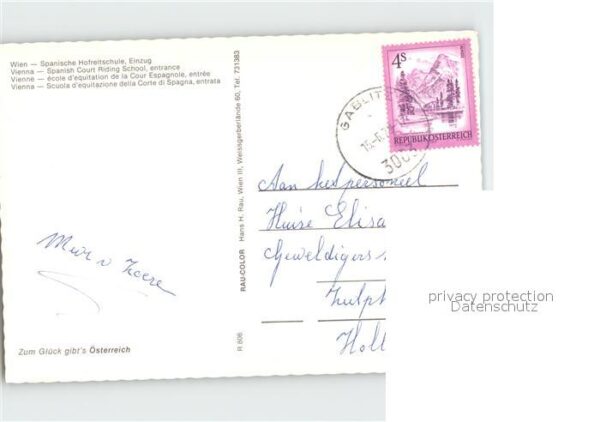 Wien — Spanische Hofreitschule, Einzug
Vienna — Spanish Court Riding School, entrance
Vienne — école d'equitation de la Cour Espagnole, entrée
Vienna — Scuola d'equitazione della Corte di Spagna, entrata
4S
REPUBLIK ÖSTERREICH
GABLITZ
300
Aan het personeel
Huize Elisa
Geweldigers
Zutph
Holl
Zum Glück gibt's Österreich
RAU-COLOR Hans H. Rau, Wien III, Weissgerberlände 60, Tel. 731383
R 606
privacy protection
Datenschutz